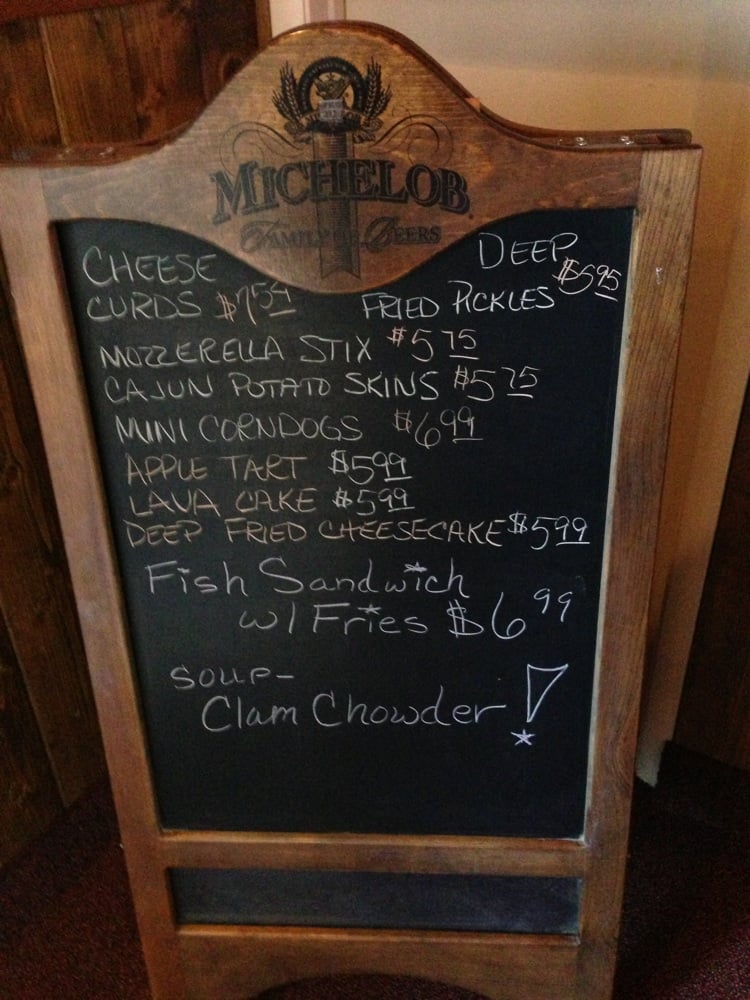 MICHELOB
FAMILY OF BEERS
CHEESE
CURDS $7
DEEP
FRIED PICKLES $6.95
MOZZERELLA STIX $5 75
CAJUN POTATO SKINS $5 75
MINI CORNDOGS $6 99
APPLE TART $5 99
LAVA CAKE $5 99
DEEP FRIED CHEESECAKE $5 99
Fish Sandwich
w/ Fries $6 99
SOUP-
Clam Chowder!